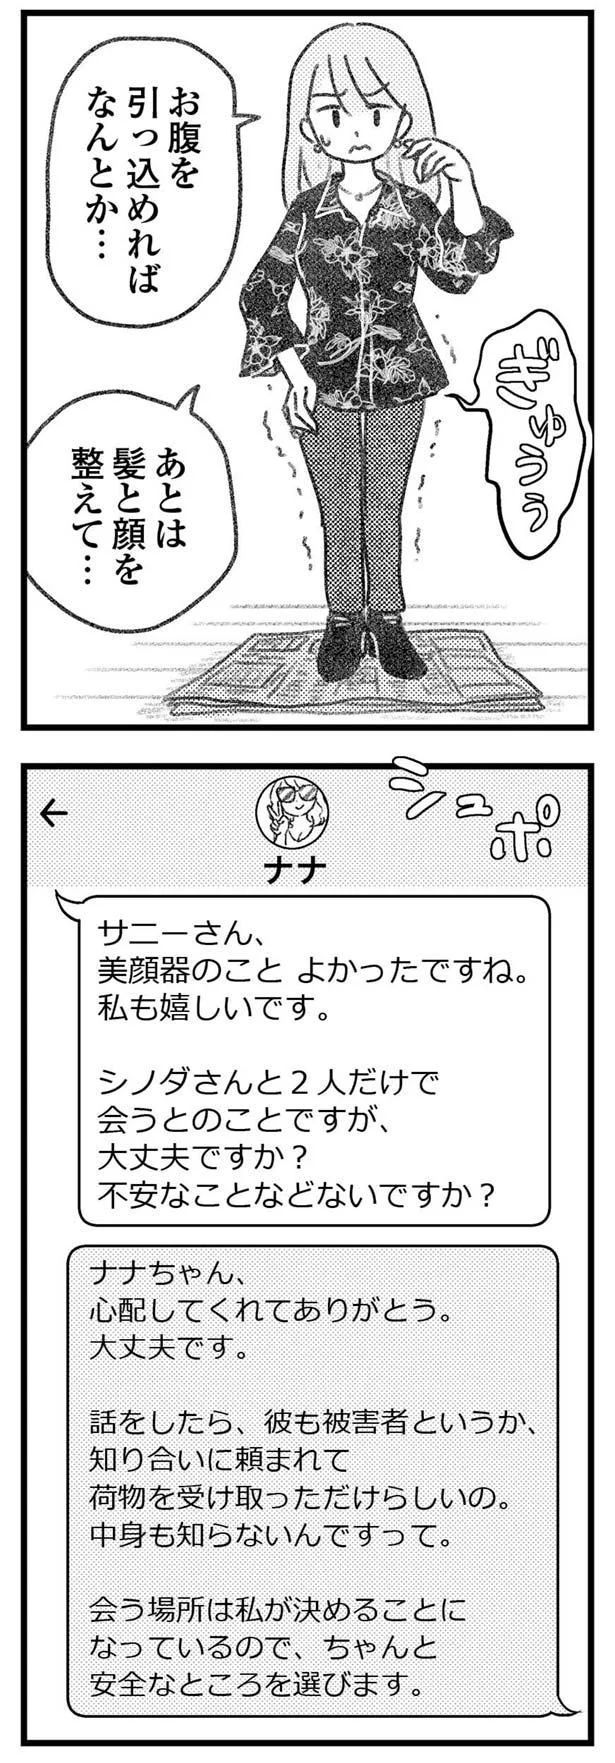 お腹を
引っ込めれば
なんとか…
ぎゅうぅ
あとは
髪と顔を
整えて…
シュポ
←
ナナ
サニーさん、
美顔器のこと よかったですね。
私も嬉しいです。
シノダさんと２人だけで
会うとのことですが、
大丈夫ですか？
不安なことなどないですか？
ナナちゃん、
心配してくれてありがとう。
大丈夫です。
話をしたら、彼も被害者というか、
知り合いに頼まれて
荷物を受け取っただけらしいの。
中身も知らないんですって。
会う場所は私が決めることに
なっているので、ちゃんと
安全なところを選びます。